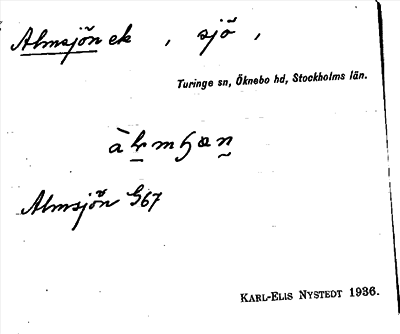 Almsjön ek , sjö ,
Turinge sn, Öknebo hd, Stockholms län.
Almsjön G67
KARL-ELIS NYSTEDT 1936.